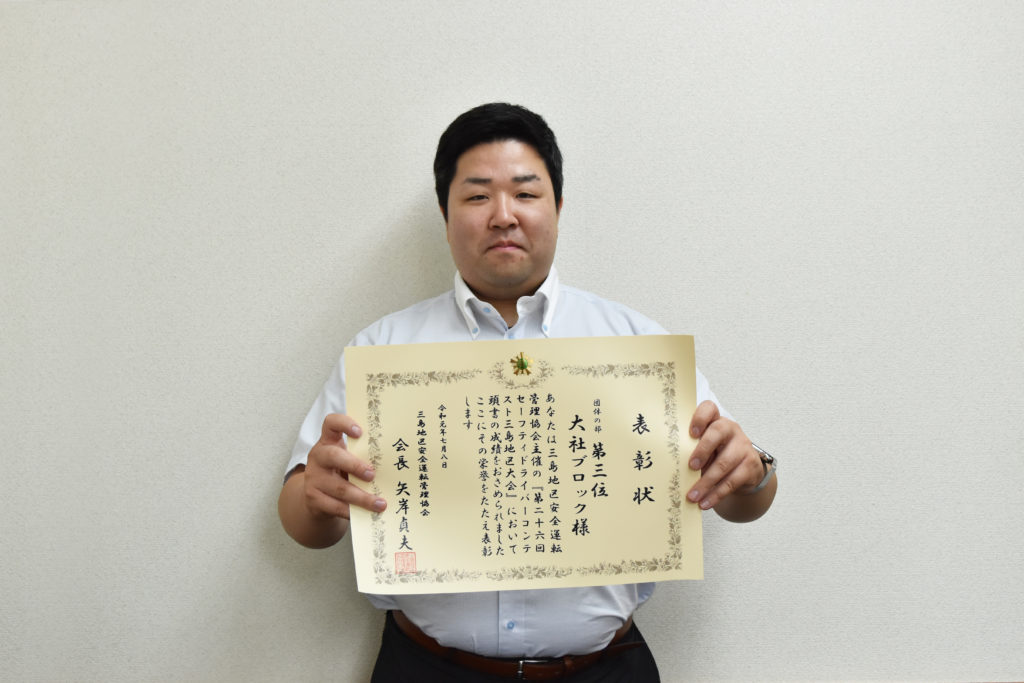 表彰状
団体の部 第三位
大社ブロック様
あなたは三島地区安全運転
管理協会主催の『第二十六回
セーフティドライバーコンテ
スト三島地区大会』において
頭書の成績をおさめられました
ここにその栄誉をたたえ表彰
します
令和元年七月八日
三島地区安全運転管理協会
会長 矢岸貞夫